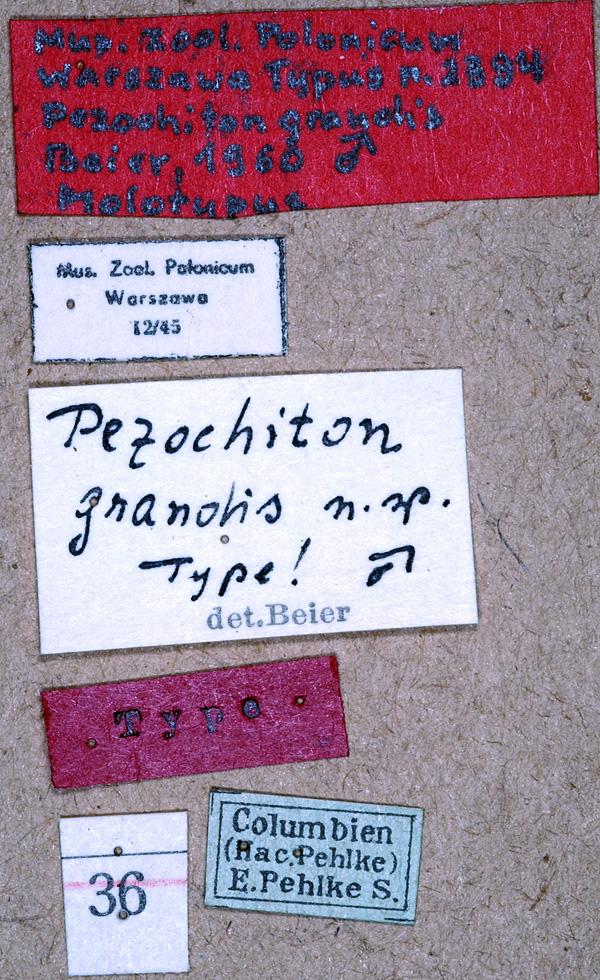 Mus. Zool. Polonicum
Warszawa Typus n. 2894
Pezochiton grandis
Beier, 1960 ♂
Holotypus
Mus. Zool. Polonicum
Warszawa
12/45
Pezochiton
grandis n. sp.
Type! ♂
det. Beier
Type
36
Columbien
(Hac. Pehlke)
E. Pehlke S.